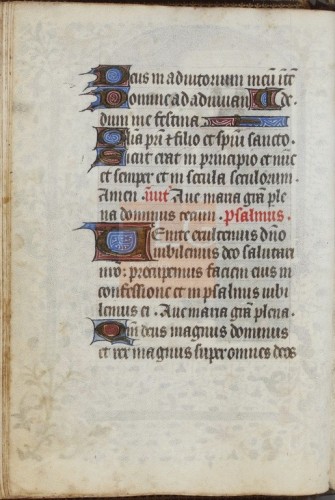 Deus in adiutorium meū itē
Domine ad adiuuan
dum me festina
Glia pri & filio et spiri sancto.
Sicut erat in principio et nūc
et semper et in secula seculorum.
Amen. Aue maria gra ple
na dominus tecum. Psalmus.
Uenite exultemus dno
iubilemus deo salutari
nro: preoccupemus faciem eius in
confessione et in psalmis iubi
lemus ei. Aue maria gra plena.
Qm deus magnus dominus
et rex magnus super omnes deos